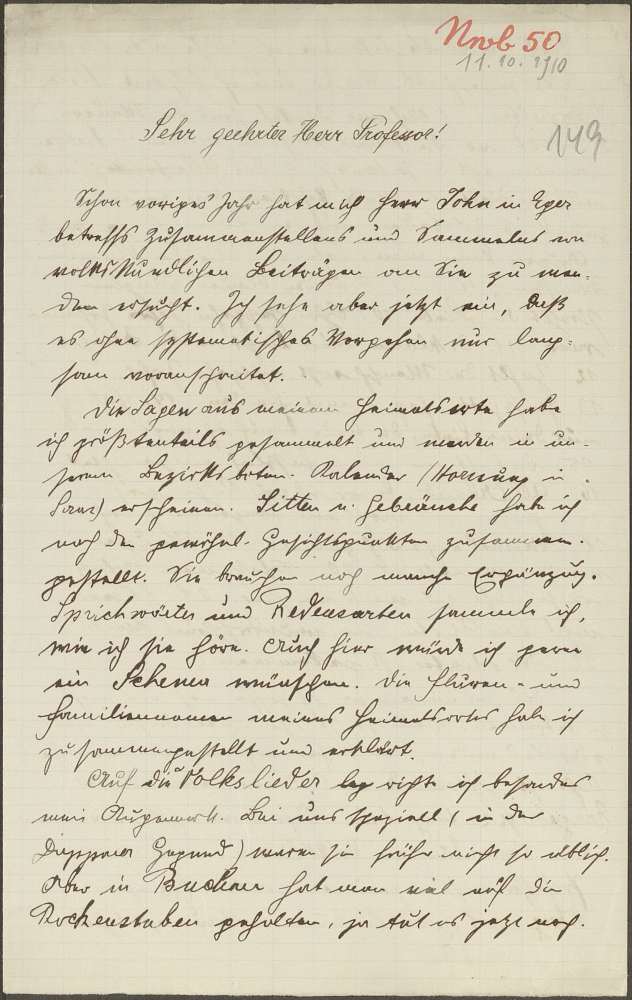 Nnvb 50
11.10.1910
149
Sehr geehrter Herr Professor!
Schon voriges Jahr hat mich Herr John in Eger
betreffs Zusammenstellens und Sammelns von
volkskundlichen Beiträgen an Sie zu wen-
den ersucht. Ich sehe aber jetzt ein, daß
es ohne systematisches Vorgehen nur lang-
sam voranschreitet.
Die Sagen aus meinem Heimatsorte habe
ich größtenteils gesammelt und werden in un-
serem Bezirksboten-Kalender (Hornung in
) erscheinen. Sitten u. Gebräuche habe ich
nach den gewöhnl. Gesichtspunkten zusammen-
gestellt. Sie brauchen noch manche Ergänzug.
Sprichwörter und Redensarten sammle ich,
wie ich sie höre. Auch hier würde ich gerne
ein Schema wünschen. Die Fluren- und
Familiennamen meines Heimatsortes habe ich
zusammengestellt und erklärt.
Auf die Volkslieder richte ich besonders
mein Augenmerk. Bei uns speziell (in der
Gegend) waren sie früher nicht so üblich.
Aber in Buchau hat man viel auf die
Rockenstuben gehalten, ja tut es jetzt noch.